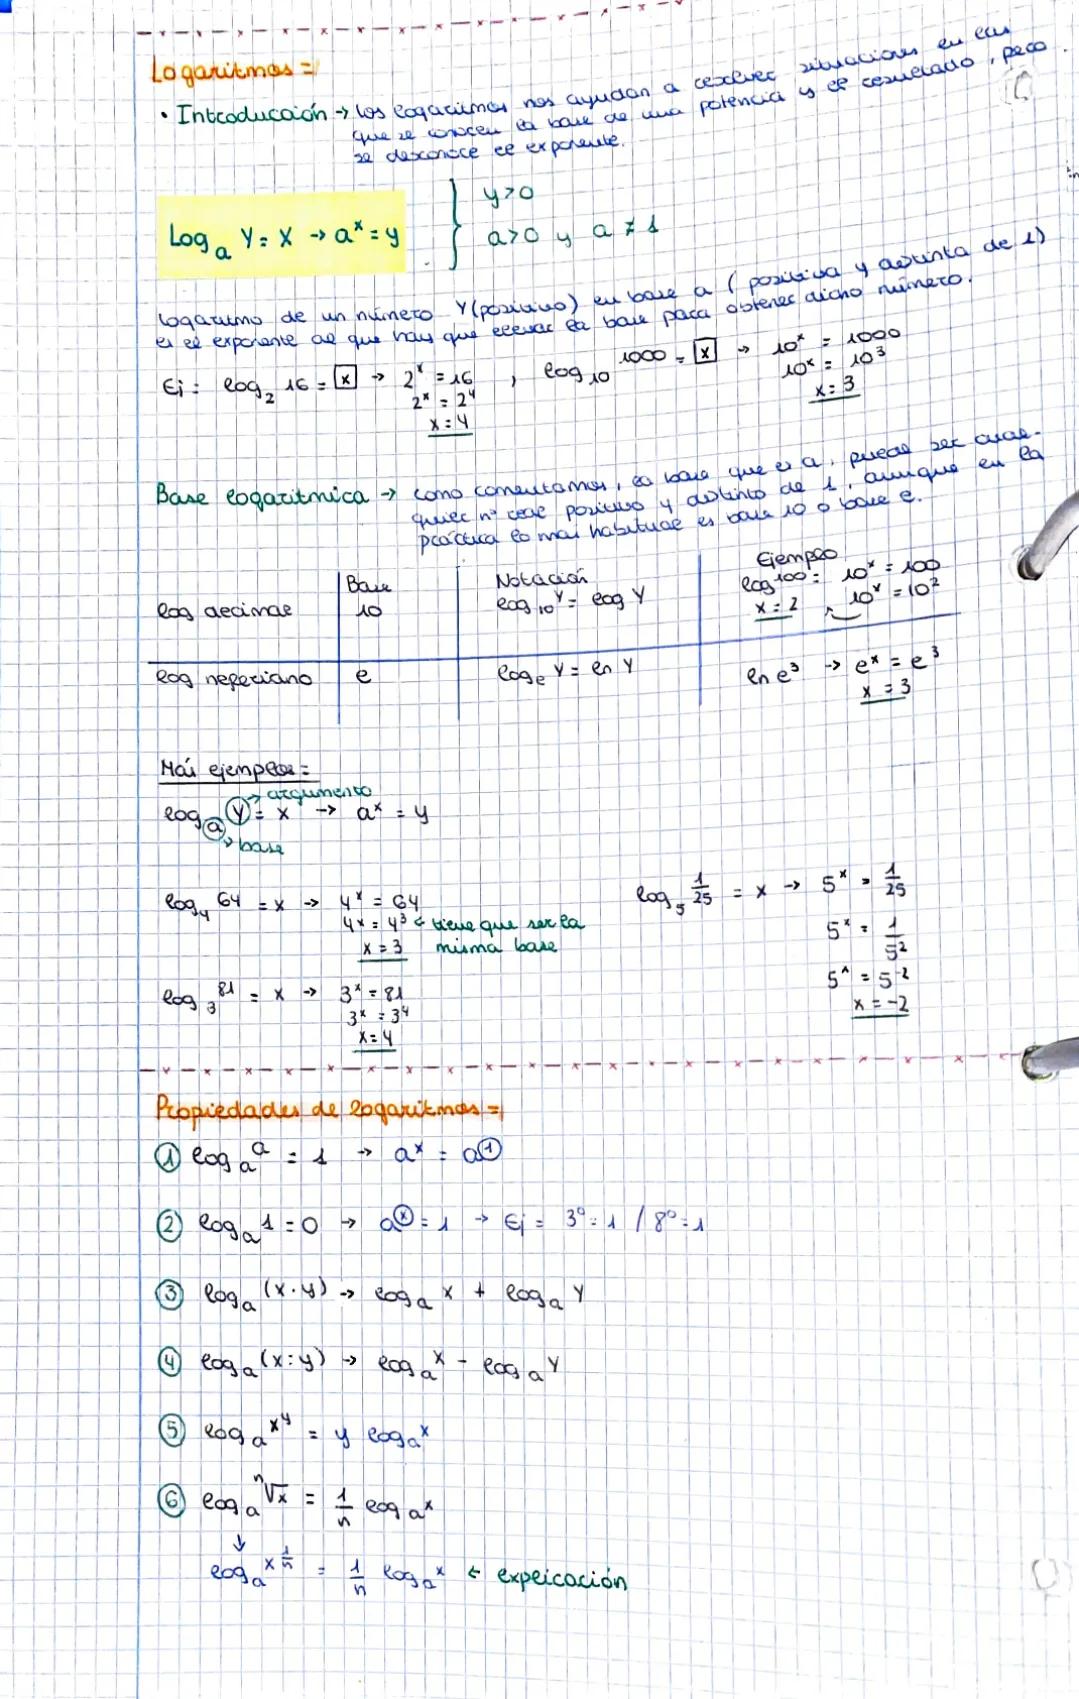 Logaritmos =
• Introducción → los logaritmos nos ayudan a resolver situaciones en las
que se conocen la base de una potencia y el resultado, pero
se desconoce el exponente.
Log_a Y = X → a^x = y { y>0
a>0 y a ≠ 1
logaritmo de un número Y (positivo) en base a (positiva y distinta de 1)
es el exponente al que hay que elevar la base para obtener dicho número.
Ej: log_2 16 = [x] → 2^x = 16 , log_10 1000 = [x] → 10^x = 1000
2^x = 2^4 10^x = 10^3
x = 4 x = 3
Base logarítmica → como comentamos, la base que es a, puede ser cual-
quier nº real positivo y distinto de 1, aunque en la
práctica lo más habitual es base 10 o base e.
Base Notación Ejemplo
log decimal 10 log_10 Y = log Y log 100 = 10^x = 100
x = 2 10^x = 10^2
log neperiano e log_e Y = ln Y ln e^3 → e^x = e^3
x = 3
Más ejemplos =
→ argumento
log_a Y = x → a^x = y
→ base
log_4 64 = x → 4^x = 64 log_5 1/25 = x → 5^x = 1/25
4^x = 4^3 ← tiene que ser la 5^x = 1/5^2
x = 3 misma base 5^x = 5^-2
log_3 81 = x → 3^x = 81 x = -2
3^x = 3^4
x = 4
Propiedades de logaritmos =
① log_a a = 1 → a^x = a^①
② log_a 1 = 0 → a^ⓧ = 1 → Ej = 3^0 = 1 / 8^0 = 1
③ log_a (x·y) → log_a x + log_a y
④ log_a (x:y) → log_a x - log_a y
⑤ log_a x^y = y log_a x
⑥ log_a ⁿ√x = 1/n log_a x
↓
log_a x^1/n = 1/n log_a x ← explicación